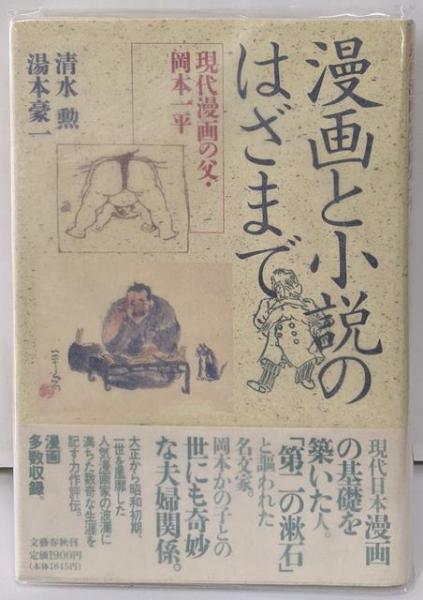 漫画と小説の
はざまで
現代漫画の父・
岡本一平
清水 勲
湯本豪一
現代日本漫画
の基礎を
築いた人。
「第二の漱石」
と謳われた
名文家。
岡本かの子との
世にも奇妙
な夫婦関係。
大正から昭和初期、
一世を風靡した
人気漫画家の波瀾に
満ちた数奇な生涯を
記す力作評伝。
漫画
多数収録。
文藝春秋刊
定価1900円
(本体1845円)